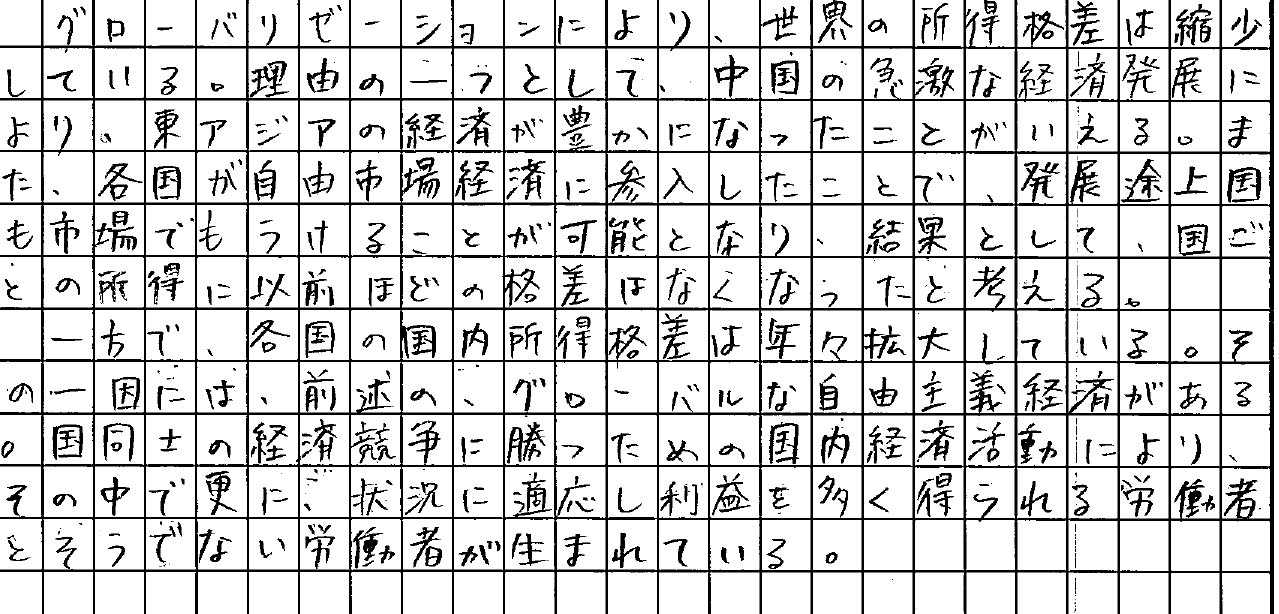 グローバリゼーションにより、世界の所得格差は縮少
している。理由の一つとして、中国の急激な経済発展に
より。東アジアの経済が豊かになったことがいえる。ま
た、各国が自由市場経済に参入したことで、発展途上国
も市場でもうけることが可能となり、結果として、国ご
との所得に以前ほどの格差はなくなったと考える。
一方で、各国の国内所得格差は年々拡大している。そ
の一因には、前述の、グローバルな自由主義経済がある
。国同士の経済競争に勝つための国内経済活動により、
その中で更に、状況に適応し利益を多く得られる労働者
とそうでない労働者が生まれている。